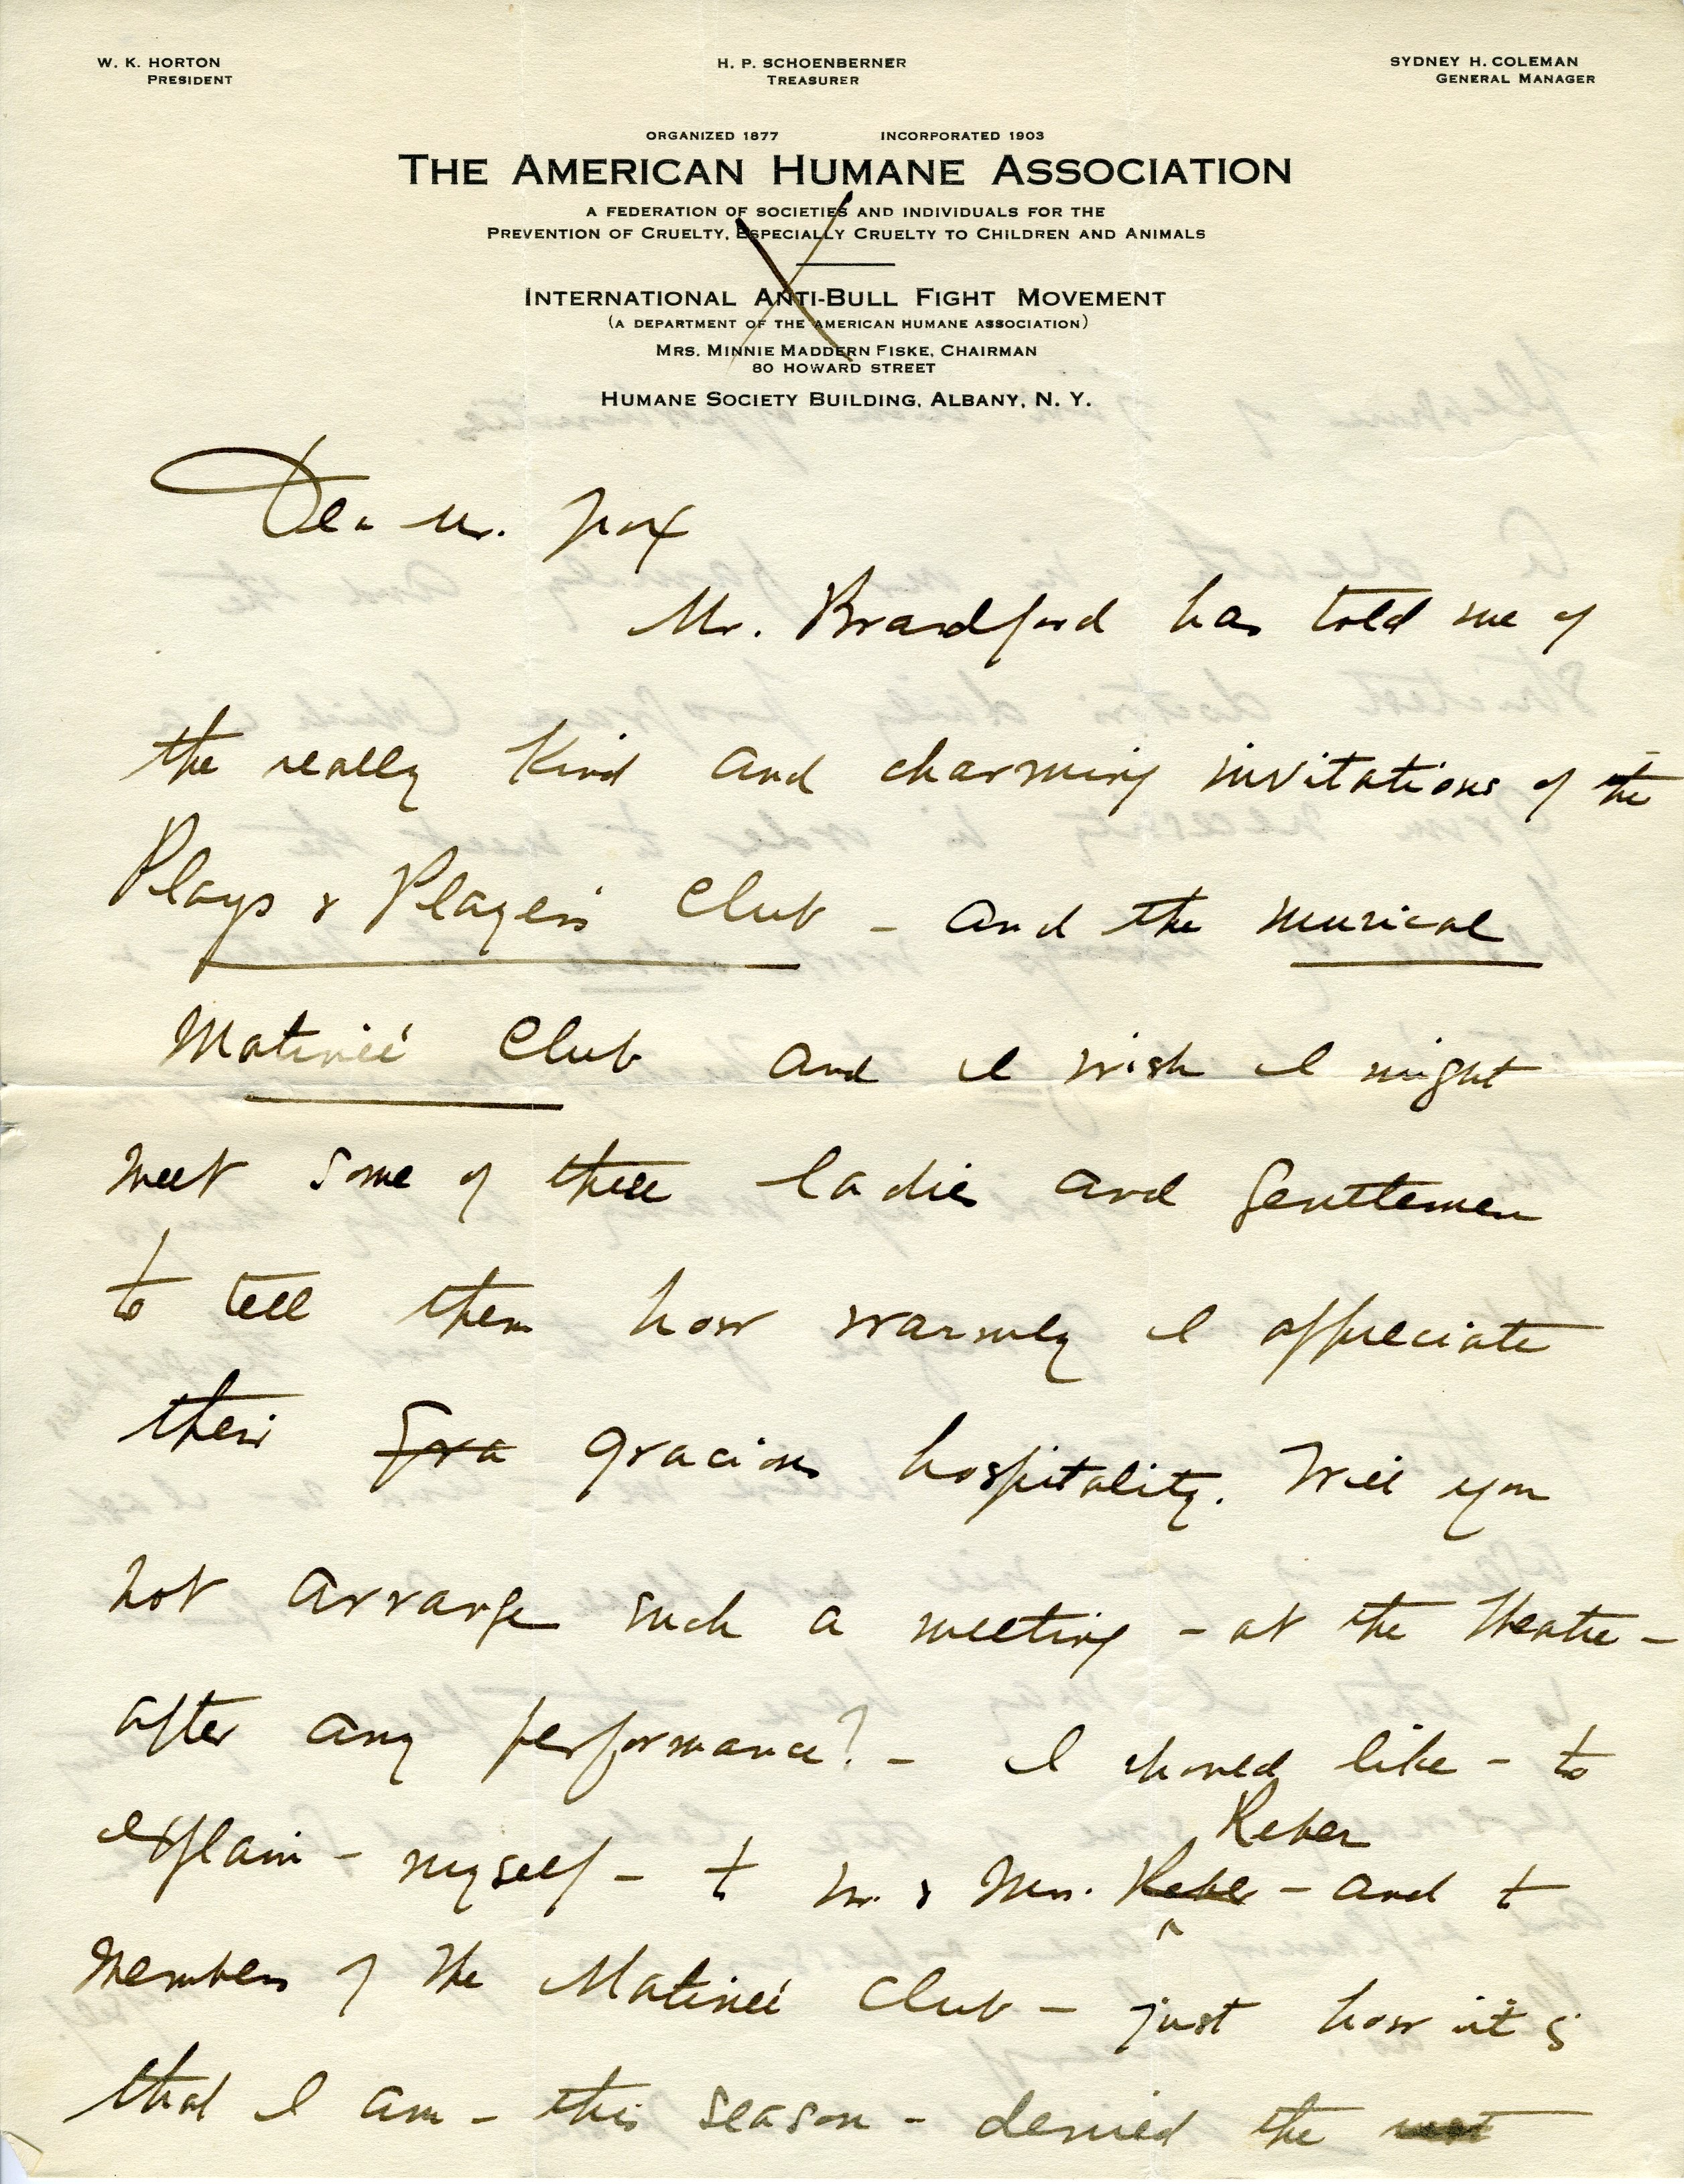 W. K. HORTON
PRESIDENT
H. P. SCHOENBERNER
TREASURER
SYDNEY H. COLEMAN
GENERAL MANAGER
ORGANIZED 1877 INCORPORATED 1903
THE AMERICAN HUMANE ASSOCIATION
A FEDERATION OF SOCIETIES AND INDIVIDUALS FOR THE
PREVENTION OF CRUELTY, ESPECIALLY CRUELTY TO CHILDREN AND ANIMALS
INTERNATIONAL ANTI-BULL FIGHT MOVEMENT
(A DEPARTMENT OF THE AMERICAN HUMANE ASSOCIATION)
MRS. MINNIE MADDERN FISKE, CHAIRMAN
80 HOWARD STREET
HUMANE SOCIETY BUILDING, ALBANY, N. Y.
Dear Mr.
Mr. Bradford has told me of
the really kind and charming invitations of the
Plays & Players Club - and the musical
Matineé Club and I wish I might
meet some of these ladies and gentlemen
to tell them how warmly I appreciate
their gra gracious hospitality. Will you
not arrange such a meeting - at the theatre -
after any performance? - I should like - to
Reber
explain - myself - to Mr. & Mrs. - and to
members of the Matineé Club - just how it is
that I am - this season - denied the